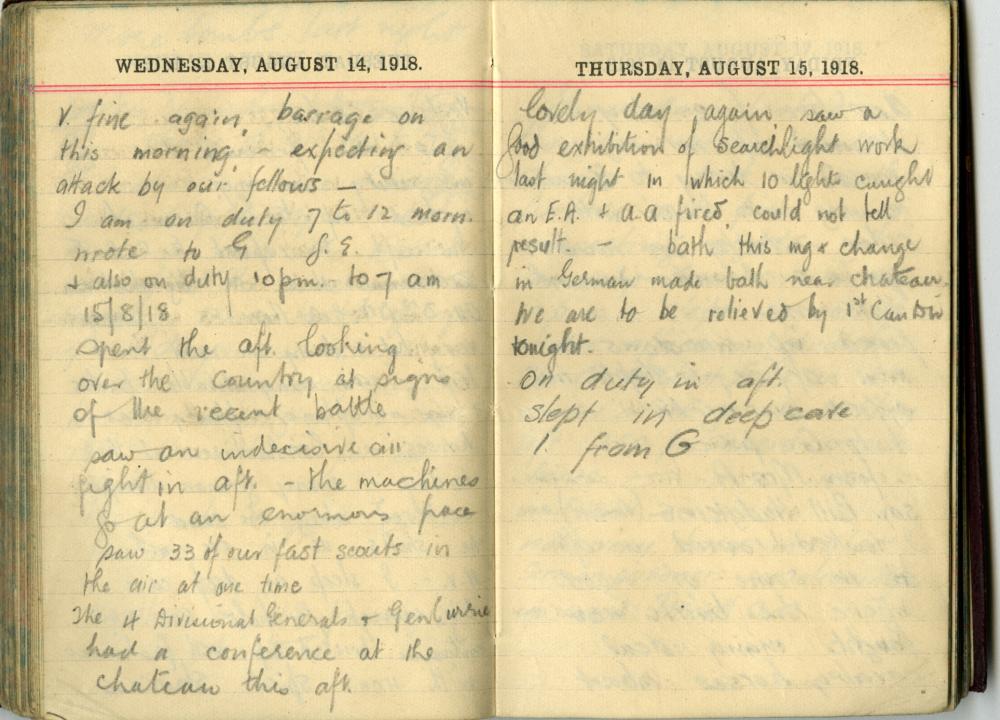 WEDNESDAY, AUGUST 14, 1918.
V. fine again, barrage on
this morning - expecting an
attack by our fellows -
I am on duty 7 to 12 morn.
wrote to G
+ also on duty 10pm. to 7 am
15/8/18
spent the aft. looking
over the country at signs
of the recent battle
saw an indecisive air
fight in aft. - the machines
go at an enormous pace
saw 33 of our fast scouts in
the air at one time
The 4 Divisional Generals + Gen Currie
had a conference at the
chateau this aft.
THURSDAY, AUGUST 15, 1918.
lovely day again saw a
good exhibition of searchlight work
last night in which 10 light caught
an E.A. + a.a fired could not tell
result - bath this mg + change
in German made bath near chateau.
We are to be relieved by 1st Can Div
tonight.
On duty in aft.
slept in deep cave
1. from G